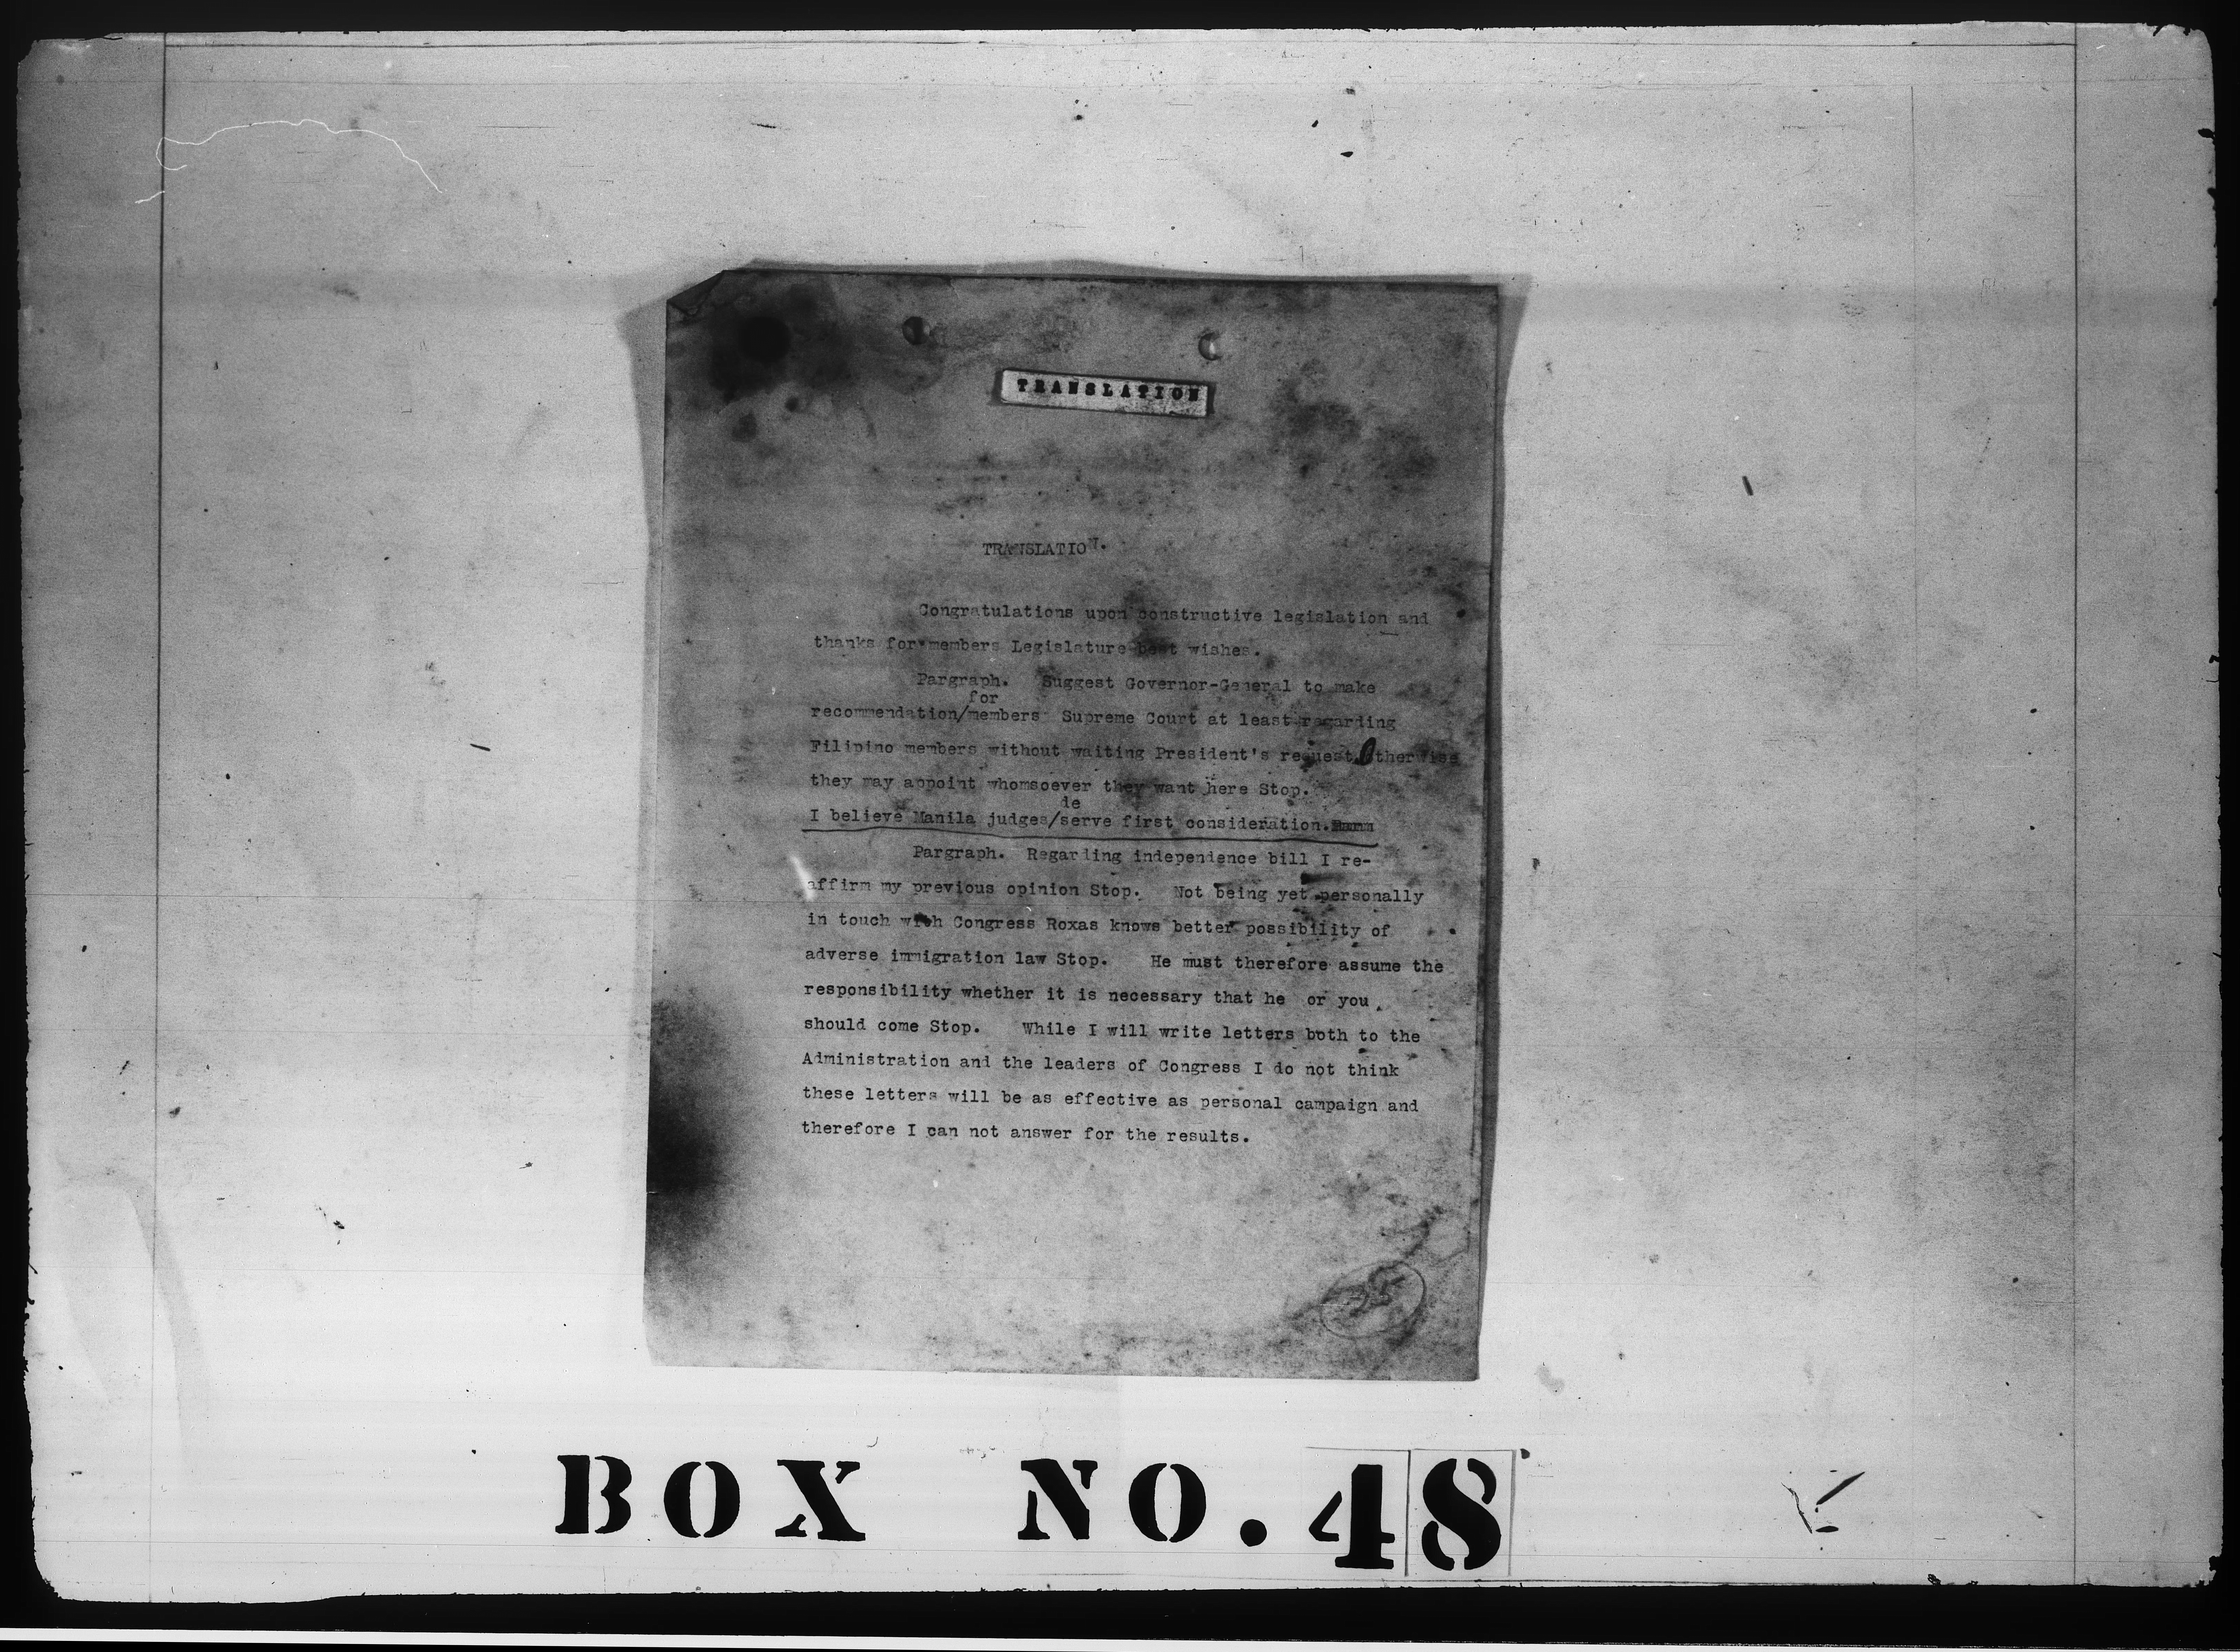 TRANSLATION
TRANSLATION.
Congratulations upon constructive legislation and
thanks for members Legislature best wishes.
Pargraph. Suggest Governor-General to make
for
recommendation/members Supreme Court at least regarding
Filipino members without waiting President's request Otherwise
they may appoint whomsoever they want here Stop.
de
I believe Manila judges/serve first consideration.
Pargraph. Regarding independence bill I re-
affirm my previous opinion Stop. Not being yet personally
in touch with Congress Roxas knows better possibility of
adverse immigration law Stop. He must therefore assume the
responsibility whether it is necessary that he or you
should come Stop. While I will write letters both to the
Administration and the leaders of Congress I do not think
these letters will be as effective as personal campaign and
therefore I can not answer for the results.
BOX NO. 48